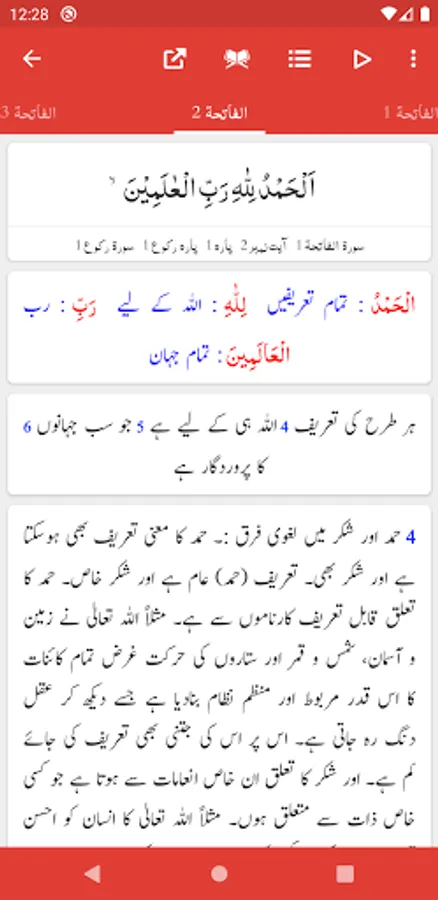 12:28
الفاتحة 3
الفاتحة 2
الفاتحة 1
اَلْحَمْدُ لِلّٰهِ رَبِّ الْعٰلَمِيْنَ ۙ
سورۃ الفاتحۃ 1 آیت نمبر 2 پارہ 1 پارہ رکوع 1 سورۃ رکوع 1
الْحَمْدُ : تمام تعریفیں لِلّٰهِ : اللہ کے لیے رَبِّ : رب
الْعَالَمِينَ : تمام جہان
ہر طرح کی تعریف 4 اللہ ہی کے لیے ہے 5 جو سب جہانوں 6
کا پروردگار ہے
4 حمد اور شکر میں لغوی فرق :۔ حمد کا معنی تعریف بھی ہوسکتا
ہے اور شکر بھی۔ تعریف (حمد) عام ہے اور شکر خاص۔ حمد کا
تعلق قابل تعریف کارناموں سے ہے۔ مثلاً اللہ تعالٰی نے زمین
و آسمان، شمس و قمر اور ستاروں کی حرکت غرض تمام کائنات
کا اس قدر مربوط اور منظم نظام بنادیا ہے جسے دیکھ کر عقل
دنگ رہ جاتی ہے۔ اس پر اس کی جتنی بھی تعریف کی جائے
کم ہے۔ اور شکر کا تعلق ان خاص انعامات سے ہوتا ہے جو کسی
خاص ذات سے متعلق ہوں۔ مثلاً اللہ تعالٰی کا انسان کو احسن